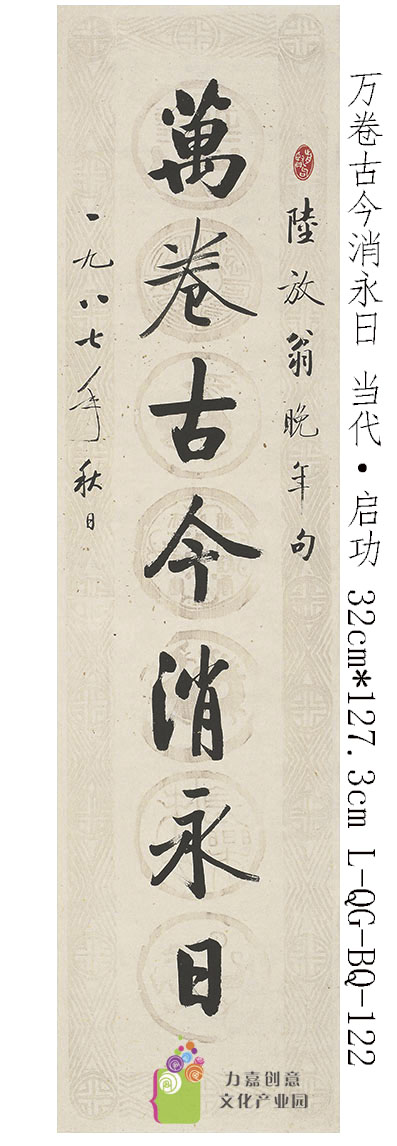 万卷古今消永日 当代·启功 32cm*127.3cm L-QG-BQ-122
陸放翁晚年句
萬卷古今消永日
一九八七年秋日
力嘉创意
文化产业园